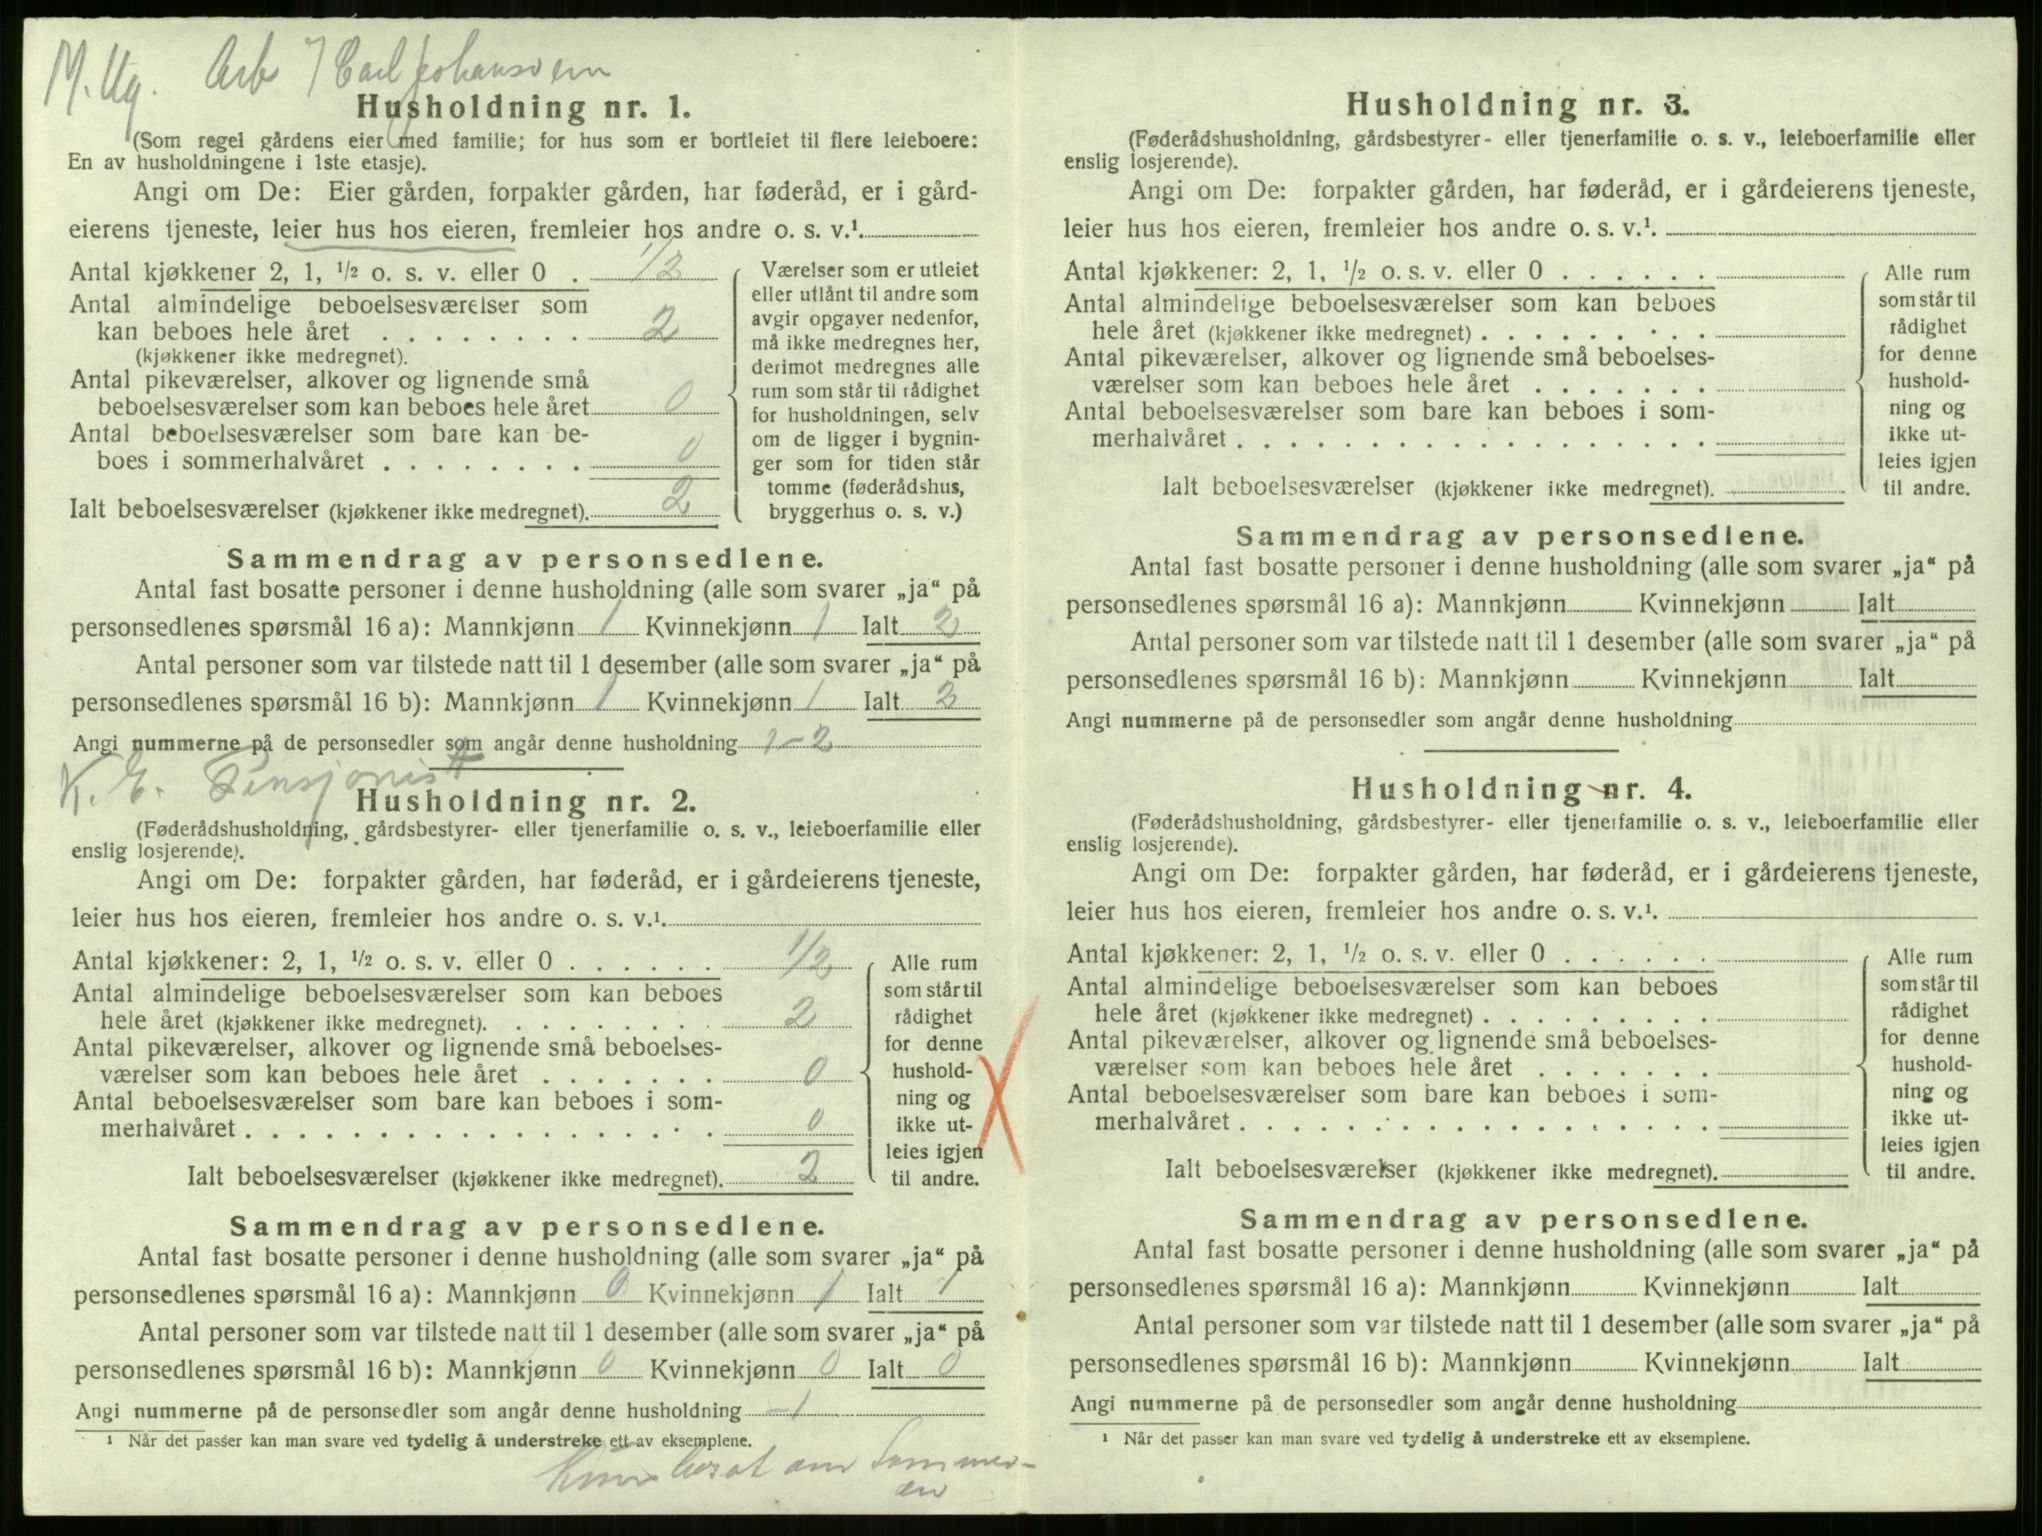 M. Ug. Arb Carl Johansen
Husholdning nr. 1.
(Som regel gårdens eier med familie; for hus som er bortleiet til flere leieboere:
En av husholdningene i 1ste etasje).
Angi om De: Eier gården, forpakter gården, har føderåd, er i gård-
eierens tjeneste, leier hus hos eieren, fremleier hos andre o. s. v.¹.
Antal kjøkkener 2, 1, ½ o. s. v. eller 0 . 1/2
Antal almindelige beboelsesværelser som
kan beboes hele året . . . . . . . . 2
(kjøkkener ikke medregnet).
Antal pikeværelser, alkover og lignende små
beboelsesværelser som kan beboes hele året 0
Antal beboelsesværelser som bare kan be-
boes i sommerhalvåret . . . . . . . . 0
Ialt beboelsesværelser (kjøkkener ikke medregnet). 2
Værelser som er utleiet
eller utlånt til andre som
avgir opgaver nedenfor,
må ikke medregnes her,
derimot medregnes alle
rum som står til rådighet
for husholdningen, selv
om de ligger i bygnin-
ger som for tiden står
tomme (føderådshus,
bryggerhus o. s. v.)
Sammendrag av personsedlene.
Antal fast bosatte personer i denne husholdning (alle som svarer „ja“ på
personsedlenes spørsmål 16 a): Mannkjønn 1 Kvinnekjønn 1 Ialt 2
Antal personer som var tilstede natt til 1 desember (alle som svarer „ja“ på
personsedlenes spørsmål 16 b): Mannkjønn 1 Kvinnekjønn 1 Ialt 2
Angi nummerne på de personsedler som angår denne husholdning 1-2
K. E. Pensjonist
Husholdning nr. 2.
(Føderådshusholdning, gårdsbestyrer- eller tjenerfamilie o. s. v., leieboerfamilie eller
enslig losjerende).
Angi om De: forpakter gården, har føderåd, er i gårdeierens tjeneste,
leier hus hos eieren, fremleier hos andre o. s. v.¹.
Antal kjøkkener: 2, 1, ½ o. s. v. eller 0 . . . . . . 1/2
Antal almindelige beboelsesværelser som kan beboes
hele året (kjøkkener ikke medregnet). . . . . . . . . 2
Antal pikeværelser, alkover og lignende små beboelses-
værelser som kan beboes hele året . . . . . . . 0
Antal beboelsesværelser som bare kan beboes i som-
merhalvåret . . . . . . . . . . . . . . . . . . 0
Ialt beboelsesværelser (kjøkkener ikke medregnet). 2
Alle rum
som står til
rådighet
for denne
hushold-
ning og
ikke ut-
leies igjen
til andre.
Sammendrag av personsedlene.
Antal fast bosatte personer i denne husholdning (alle som svarer „ja“ på
personsedlenes spørsmål 16 a): Mannkjønn 0 Kvinnekjønn 1 Ialt 1
Antal personer som var tilstede natt til 1 desember (alle som svarer „ja“ på
personsedlenes spørsmål 16 b): Mannkjønn 0 Kvinnekjønn 0 Ialt 0
Angi nummerne på de personsedler som angår denne husholdning -1
¹ Når det passer kan man svare ved tydelig å understreke ett av eksemplene.
om Sommer-
en
Husholdning nr. 3.
(Føderådshusholdning, gårdsbestyrer- eller tjenerfamilie o. s. v., leieboerfamilie eller
enslig losjerende).
Angi om De: forpakter gården, har føderåd, er i gårdeierens tjeneste,
leier hus hos eieren, fremleier hos andre o. s. v.¹.
Antal kjøkkener: 2, 1, ½ o. s. v. eller 0 . . . . . .
Antal almindelige beboelsesværelser som kan beboes
hele året (kjøkkener ikke medregnet) . . . . . . . . .
Antal pikeværelser, alkover og lignende små beboelses-
værelser som kan beboes hele året . . . . . . .
Antal beboelsesværelser som bare kan beboes i som-
merhalvåret . . . . . . . . . . . . . . . . . .
Ialt beboelsesværelser (kjøkkener ikke medregnet).
Alle rum
som står til
rådighet
for denne
hushold-
ning og
ikke ut-
leies igjen
til andre.
Sammendrag av personsedlene.
Antal fast bosatte personer i denne husholdning (alle som svarer „ja“ på
personsedlenes spørsmål 16 a): Mannkjønn Kvinnekjønn Ialt
Antal personer som var tilstede natt til 1 desember (alle som svarer „ja“ på
personsedlenes spørsmål 16 b): Mannkjønn Kvinnekjønn Ialt
Angi nummerne på de personsedler som angår denne husholdning
Husholdning nr. 4.
(Føderådshusholdning, gårdsbestyrer- eller tjenerfamilie o. s. v., leieboerfamilie eller
enslig losjerende).
Angi om De: forpakter gården, har føderåd, er i gårdeierens tjeneste,
leier hus hos eieren, fremleier hos andre o. s. v.¹.
Antal kjøkkener: 2, 1, ½ o. s. v. eller 0 . . . . . .
Antal almindelige beboelsesværelser som kan beboes
hele året (kjøkkener ikke medregnet) . . . . . . . . .
Antal pikeværelser, alkover og lignende små beboelses-
værelser som kan beboes hele året . . . . . . .
Antal beboelsesværelser som bare kan beboes i som-
merhalvåret . . . . . . . . . . . . . . . . . .
Ialt beboelsesværelser (kjøkkener ikke medregnet).
Alle rum
som står til
rådighet
for denne
hushold-
ning og
ikke ut-
leies igjen
til andre.
Sammendrag av personsedlene.
Antal fast bosatte personer i denne husholdning (alle som svarer „ja“ på
personsedlenes spørsmål 16 a): Mannkjønn Kvinnekjønn Ialt
Antal personer som var tilstede natt til 1 desember (alle som svarer „ja“ på
personsedlenes spørsmål 16 b): Mannkjønn Kvinnekjønn Ialt
Angi nummerne på de personsedler som angår denne husholdning
¹ Når det passer kan man svare ved tydelig å understreke ett av eksemplene.